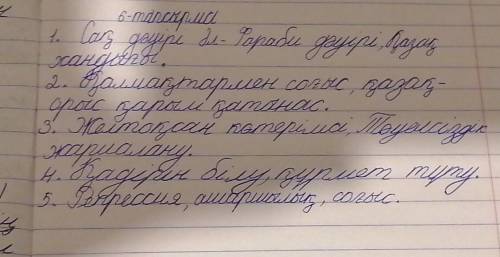 6-тапсырма
1. Сақ дәуірі Әл-Фараби дәуірі, Қазақ
хандығы.
2. Қалмақтармен соғыс, қазақ-
орыс қарым қатынас.
3. Желтоқсан көтерілісі, Тәуелсіздік
жариялану.
4. Қадірін білу, құрмет тұту.
5. Репрессия, ашаршылық, соғыс.